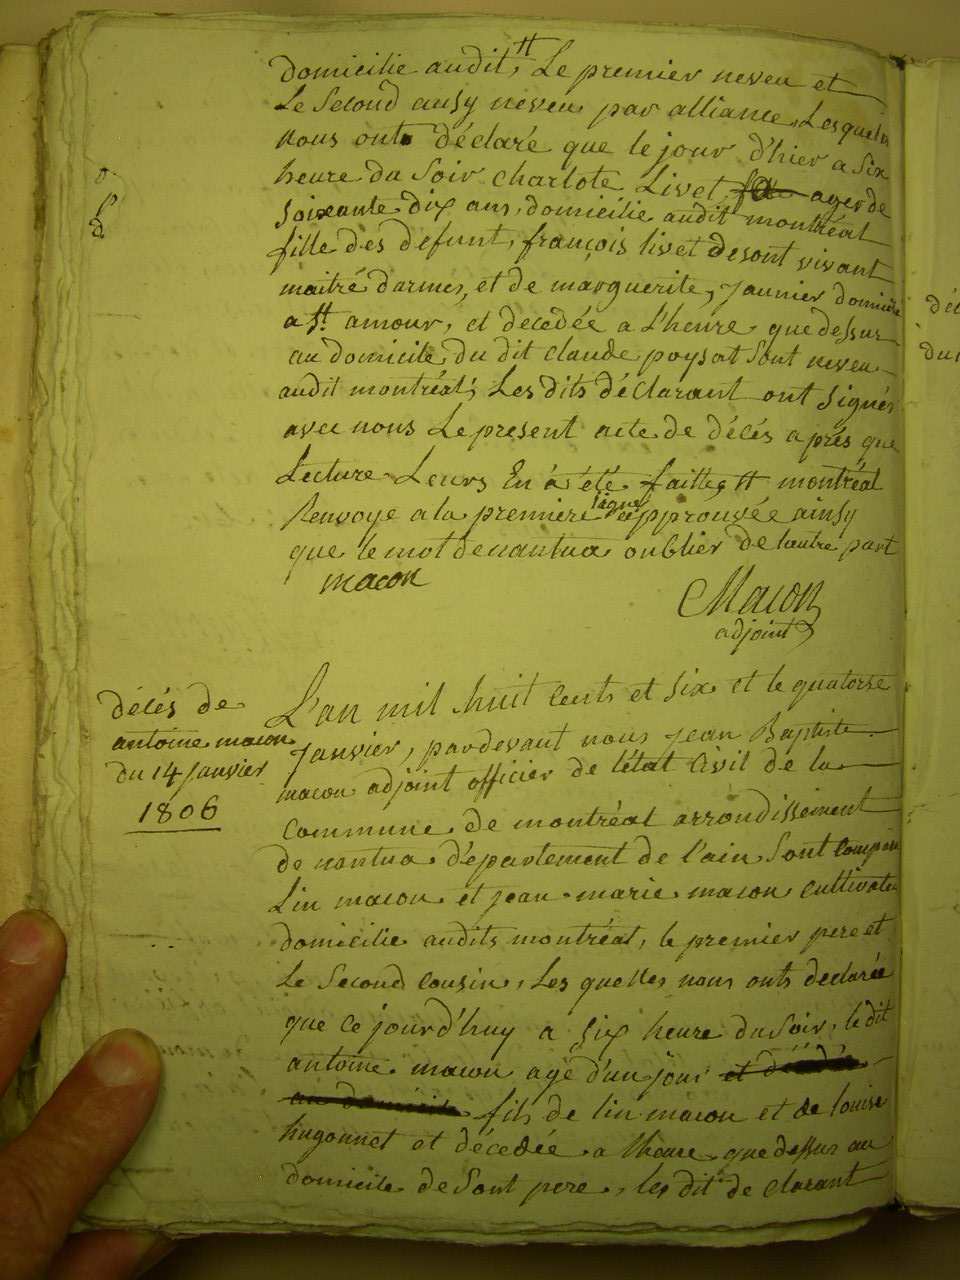 domicilie audit, # Le premier neveu et
Le Second ausy neveu par alliance, Les quels
nous onts déclaré que le jour d'hier a Six
heure du Soir Charlote Livet, ager de
Soixante dix ans, domicilie audit montréal
fille des defunt, françois livet desont vivant
maitre darmes, et de marguerite, Jaunier domicilie
a St. amour, et decedée a L'heure que dessus
au domicile du dit claude poysat Sont neveu
audit montréal; Les dits déClarant ont Signés
avec nous Le present acte de décés aprés que
Lecture Leurs En à été faitte, # montréal
Renvoye a la premiere ligne approuvée ainsy
que le mot de nantua oublier de lautre part
macon
Macon
adjoint
décés de
antoine macon
du 14 Janvier
1806
L'an mil huit Cents et Six et le quatorse
Janvier, pardevant nous Jean Baptiste
macon adjoint officier de l'état Civil de la
Commune de montréal arrondissement
de nantua département de l'ain Sont Comparu
Lin macon et jean marie macon Cultivate
domicilie audits montréal, le premier pere et
Le Second Cousin, Les quelles nous onts declarée
que Ce jourd'huy a Six heure du Soir, le dit
antoine macon agé d'un jour et décédé
au domicile fils de lin macon et de louise
hugonnet et décedée a l'heure que dessus au
domicile de Sont pere, les dit de Clarant